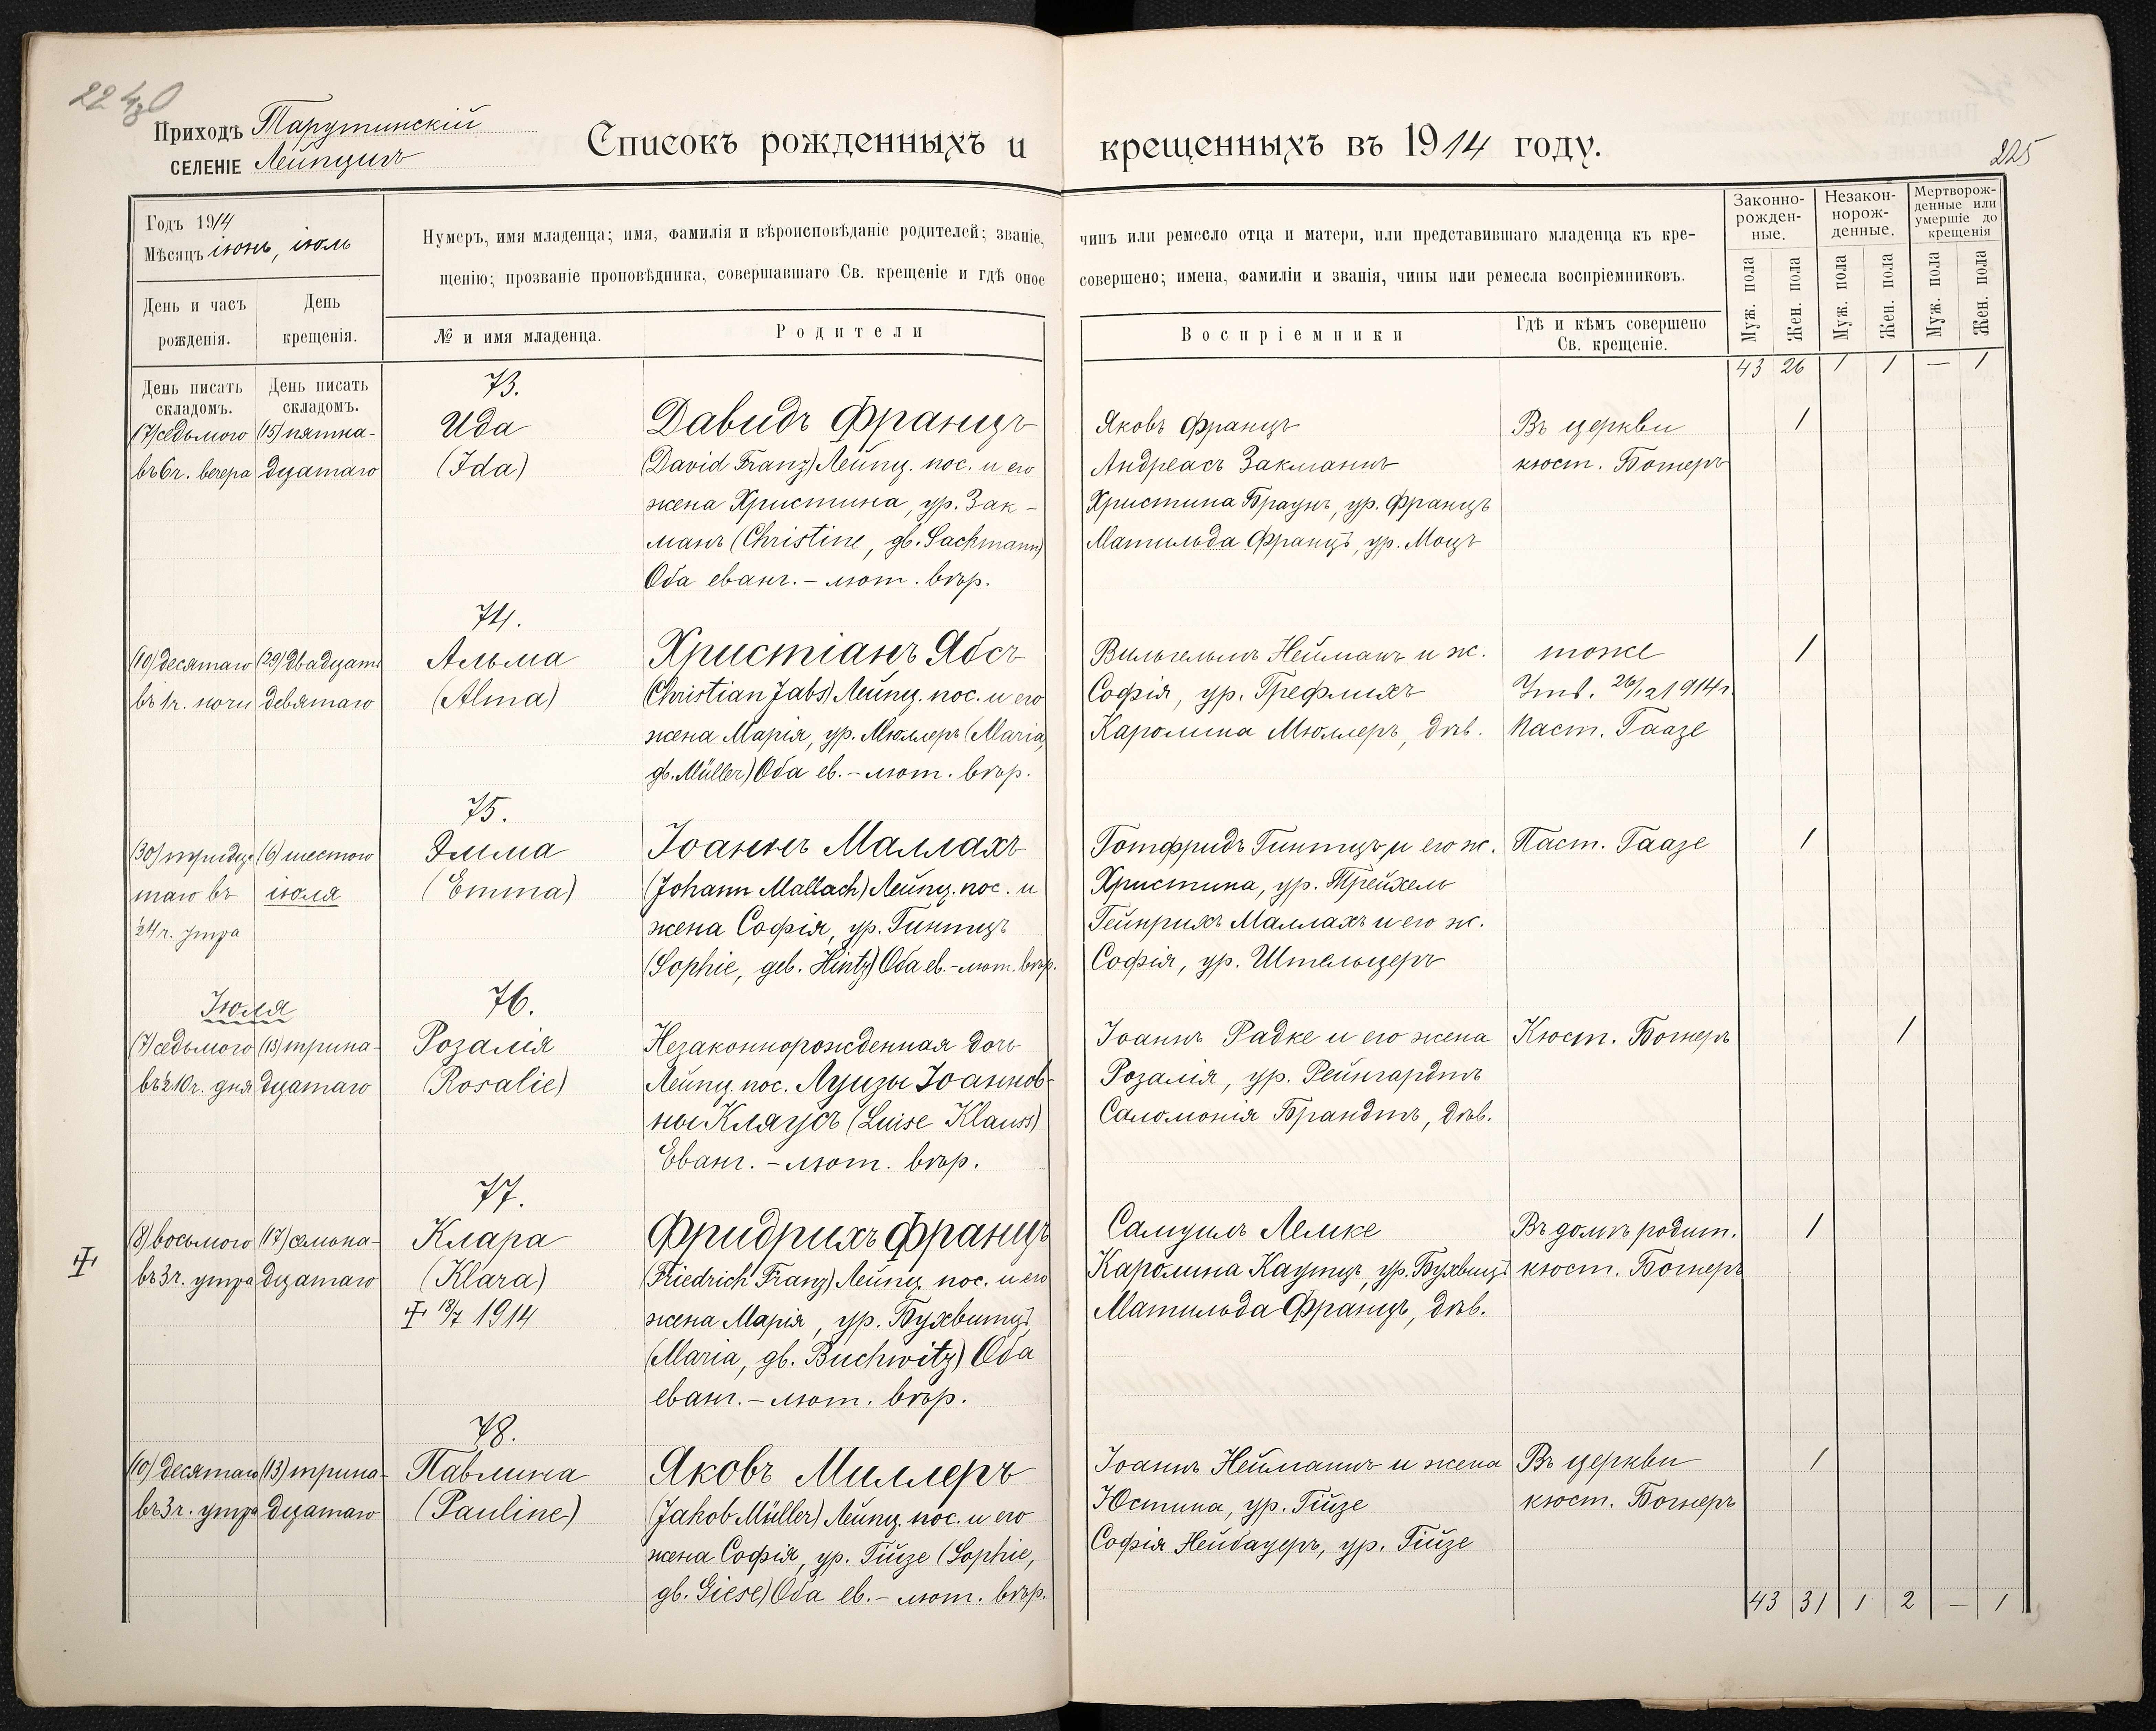 Приходъ Тарутинскій
СЕЛЕНІЕ Лейпцигъ
Списокъ рожденныхъ и крещенныхъ въ 1914 году.
225
Годъ 1914
Мѣсяцъ іюнь, іюль
Нумеръ, имя младенца; имя, фамилія и вѣроисповѣданіе родителей; званіе, чинъ или ремесло отца и матери, или представившаго младенца къ кре-
щенію; прозваніе проповѣдника, совершавшаго Св. крещеніе и гдѣ оное совершено; имена, фамиліи и званія, чины или ремесла воспріемниковъ.
Законно-
рожден-
ные.
Незакон-
норож-
денные.
Мертворож-
денные или
умершіе до
крещенія
Муж. пола
Жен. пола
Муж. пола
Жен. пола
Муж. пола
Жен. пола
День и часъ
рожденія.
День
крещенія.
№ и имя младенца.
Родители
Воспріемники
Гдѣ и кѣмъ совершено
Св. крещеніе.
День писать
складомъ.
День писать
складомъ.
43 26 1 1 — 1
73.
(7) седьмого
въ 6 ч. вечера
(15) пятна-
дцатаго
Ида
(Ida)
Давидъ Францъ
(David Franz) Лейпц. пос. и его
жена Христина, ур. Зак-
манъ (Christine, gb. Sackmann)
Оба еванг. - лют. вѣр.
Яковъ Францъ
Андреасъ Закманнъ
Христина Браунъ, ур. Францъ
Матильда Францъ, ур. Моцъ
Въ церкви
кюст. Богнеръ
1
74.
(10) десятаго
въ 1 ч. ночи
(29) двадцать
девятаго
Альма
(Alma)
Христіанъ Ябсъ
(Christian Jabs) Лейпц. пос. и его
жена Марія, ур. Мюллеръ (Maria,
gb. Müller) Оба ев. - лют. вѣр.
Вильгельмъ Нейманъ и ж.
Софія, ур. Грефлихъ
Каролина Мюллеръ, дѣв.
тоже
Утв. 26/12 1914 г.
Паст. Гаазе
1
75.
(30) тридца
таго въ
½ 4 ч. утра
(6) шестого
іюля
Эмма
(Emma)
Іоаннъ Маллахъ
(Johann Mallach) Лейпц. пос. и
жена Софія, ур. Гинтцъ
(Sophie, geb. Hintz) Оба ев. - лют. вѣр.
Готфридъ Гинтцъ и его ж.
Христина, ур. Трейхель
Гейнрихъ Маллахъ и его ж.
Софія, ур. Штельцеръ
Паст. Гаазе
1
Іюля
76.
(7) седьмого
въ ½ 10 ч. дня
(13) трина-
дцатаго
Розалія
(Rosalie)
Незаконнорожденная дочь
Лейпц. пос. Луизы Іоаннов-
ны Клаусъ (Luise Klauss)
Еванг. - лют. вѣр.
Іоаннъ Радке и его жена
Розалія, ур. Рейнгардтъ
Саломонія Брандтъ, дѣв.
Кюст. Богнеръ
1
77.
(8) восьмого
въ 3 ч. утра
(17) семьна-
дцатаго
Клара
(Klara)
18/7 1914
Фридрихъ Францъ
(Friedrich Franz) Лейпц. пос. и его
жена Марія, ур. Бухвитцъ
(Maria, gb. Buchwitz) Оба
еванг. - лют. вѣр.
Самуилъ Лемке
Каролина Каутцъ, ур. Бухвицъ
Матильда Францъ, дѣв.
Въ домѣ родит.
кюст. Богнеръ
1
78.
(10) десятаго
въ 3 ч. утра
(13) трина-
дцатаго
Павлина
(Pauline)
Яковъ Миллеръ
(Jakob Müller) Лейпц. пос. и его
жена Софія, ур. Гійзе (Sophie,
gb. Giese) Оба ев. - лют. вѣр.
Іоаннъ Нейманнъ и жена
Юстина, ур. Гійзе
Софія Нейбауеръ, ур. Гійзе
Въ церкви
кюст. Богнеръ
1
43 31 1 2 — 1